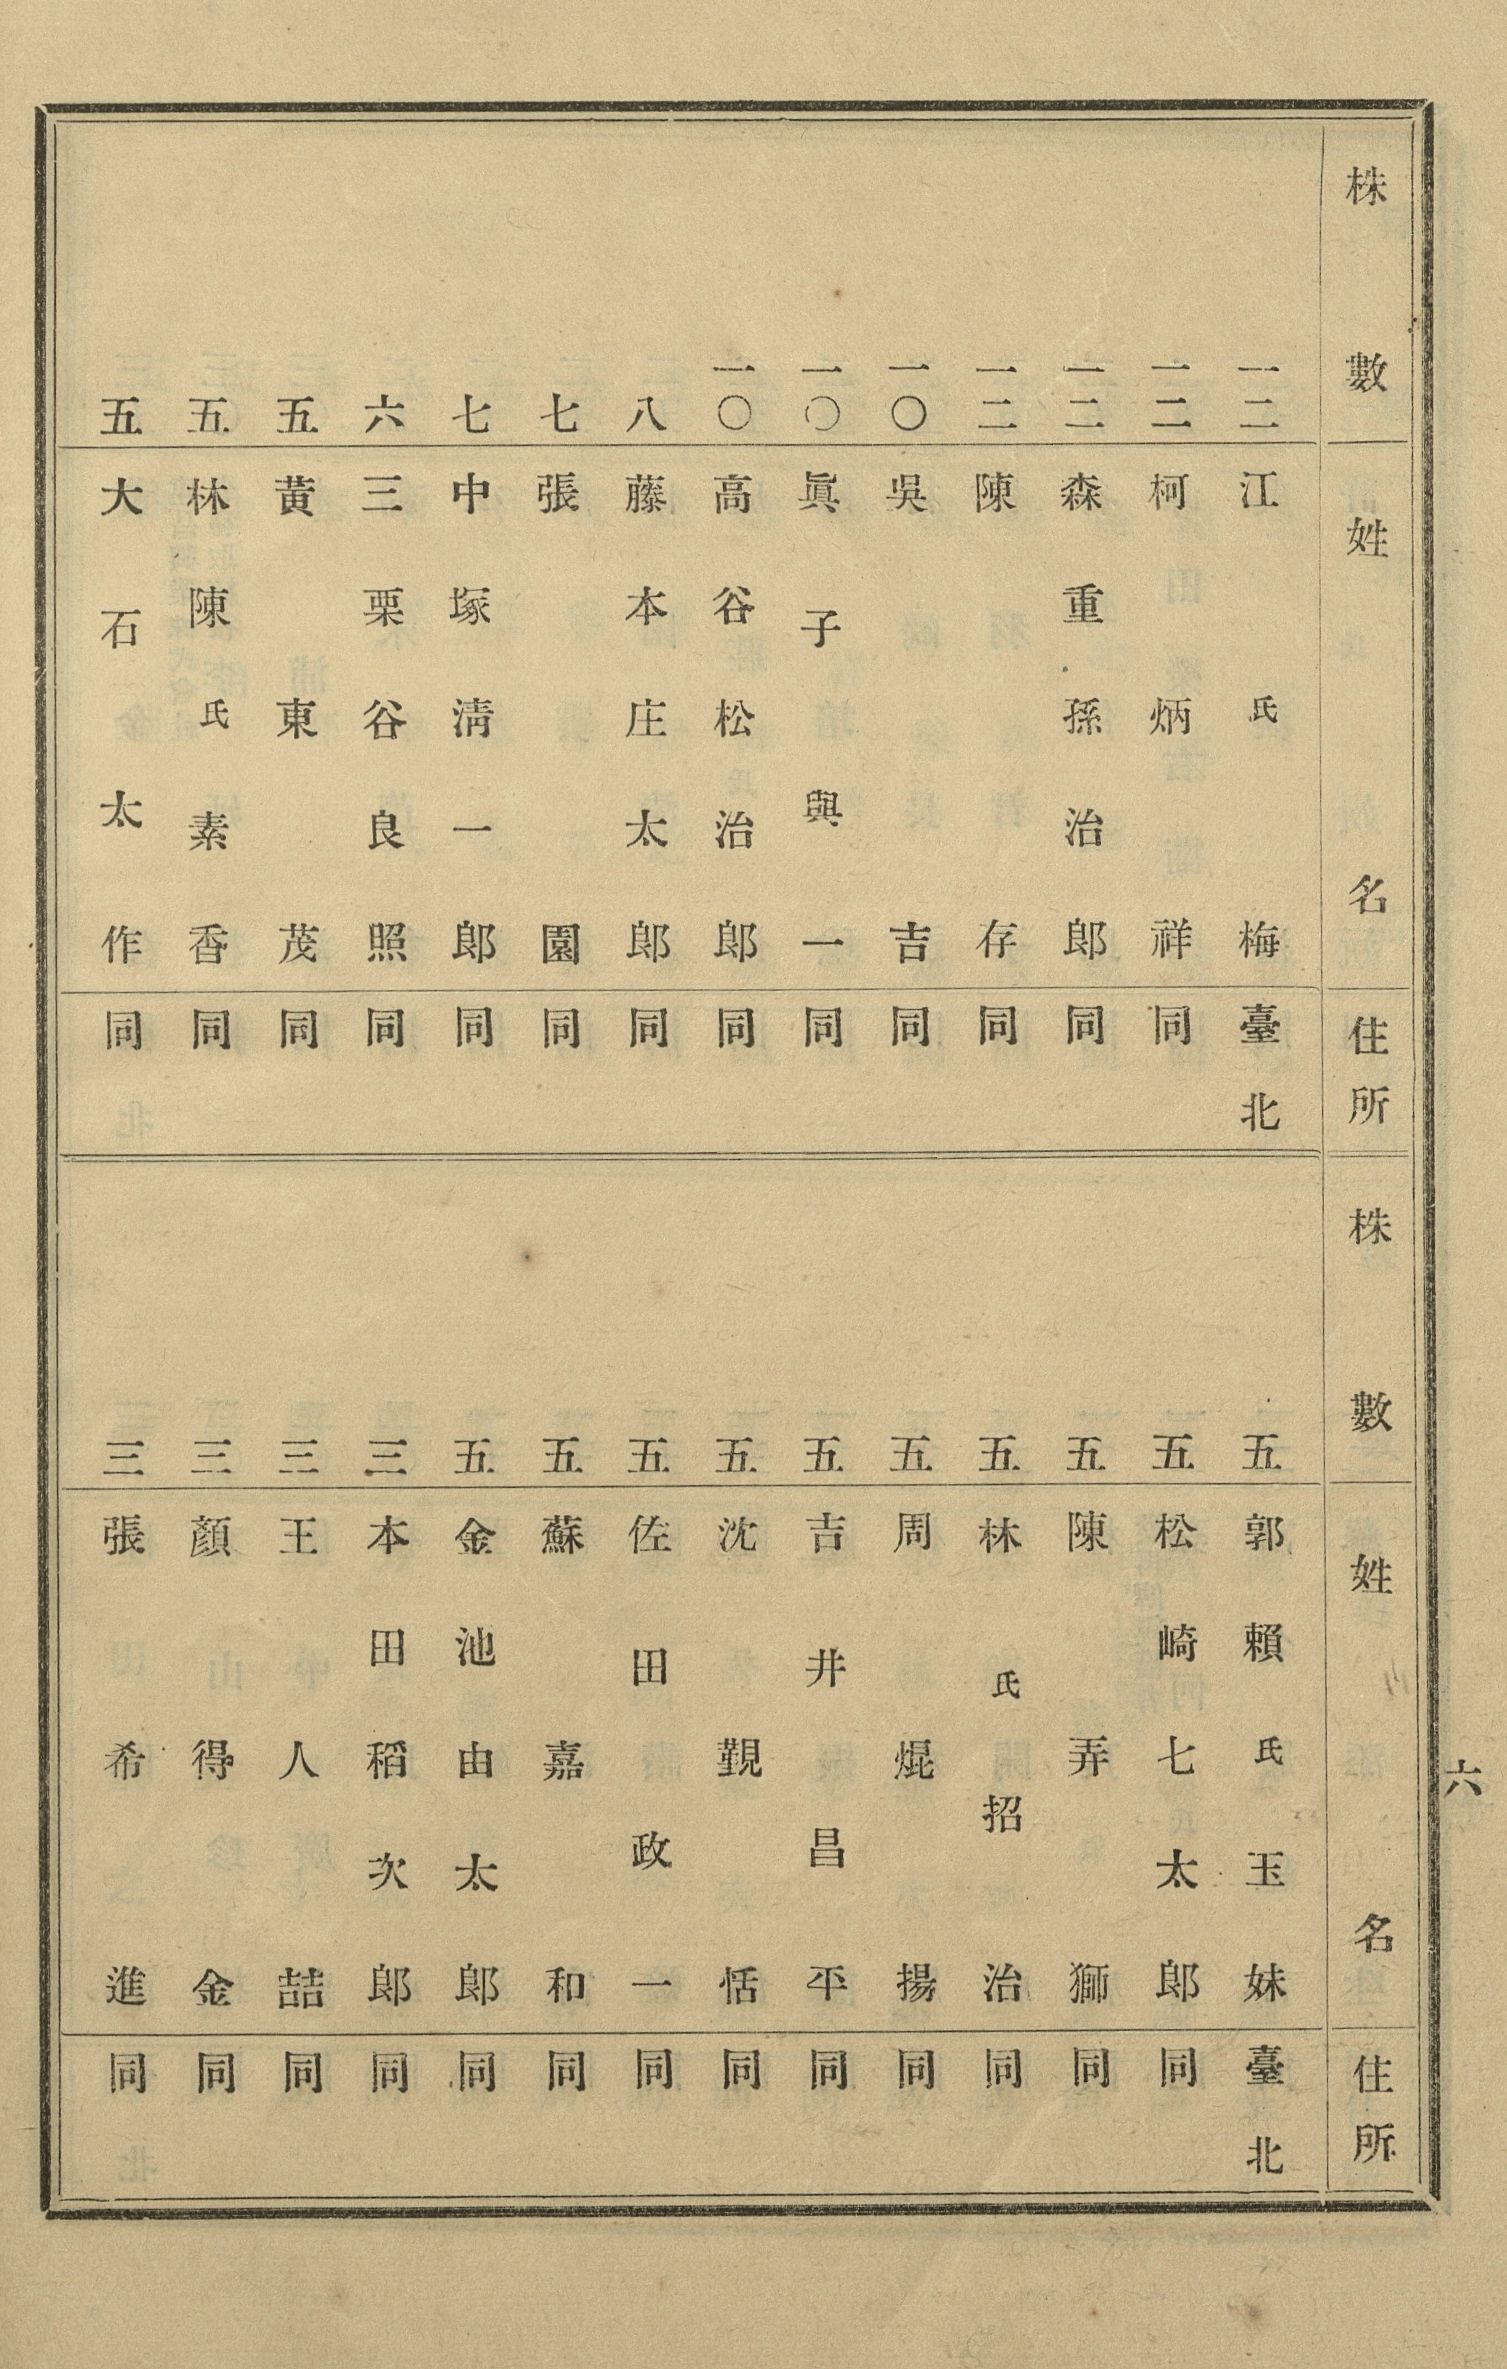 株數 姓名 住所
一二 江氏梅 臺北
一二 柯炳祥 同
一二 森重孫治郎 同
一二 陳存 同
一〇 吳吉 同
一〇 眞子與一 同
一〇 高谷松治郎 同
八 藤本庄太郎 同
七 張園 同
七 中塚淸一郎 同
六 三栗谷良照 同
五 黄東茂 同
五 林陳氏素香 同
五 大石太作 同
株數 姓名 住所
五 郭賴氏玉妹 臺北
五 松崎七太郎 同
五 陳弄獅 同
五 林氏招治 同
五 周焜揚 同
五 吉井昌平 同
五 沈覲恬 同
五 佐田政一 同
五 蘇嘉和 同
五 金池由太郎 同
三 本田稻次郎 同
三 王人喆 同
三 顏得金 同
三 張希進 同
六